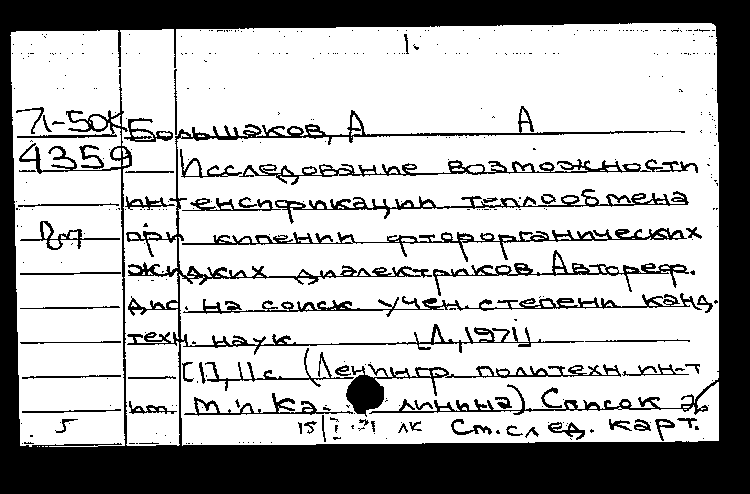 1.
Л-50К Большаков, А А
4359 Исследование возможности
интенсификации теплообмена
при кипении фторорганических
жидких диэлектриков. Автореф.
дис. на соиск. учен. степени канд.
техн. наук. [Л., 1971].
[1], 11 с. (Ленингр. политехн. ин-т
им. М.И. Ка- линина). Список
5 15/I-71 ЛК См. след. карт.